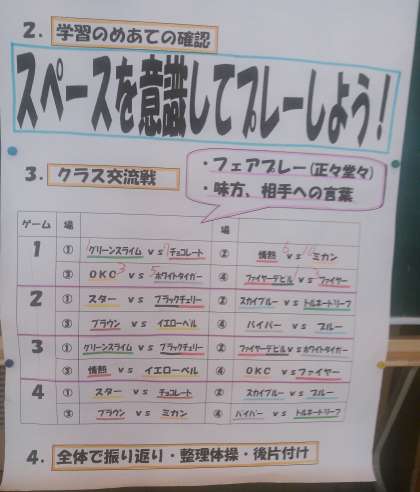 2. 学習のめあての確認
スペースを意識してプレーしよう!
3. クラス交流戦
・フェアプレー(正々堂々)
・味方、相手への言葉
ゲーム 場 場
1 ① グリーンスライム vs チョコレート ② 情熱 vs ミカン
③ OKC vs ホワイトタイガー ④ ファイヤーデビル vs ファイヤー
2 ① スター vs ブラックチェリー ② スカイブルー vs トルネードリーフ
③ ブラウン vs イエローベル ④ バイパー vs ブルー
3 ① グリーンスライム vs ブラックチェリー ② ファイヤーデビル vs ホワイトタイガー
③ 情熱 vs イエローベル ④ OKC vs ファイヤー
4 ① スター vs チョコレート ② スカイブルー vs ブルー
③ ブラウン vs ミカン ④ バイパー vs トルネードリーフ
4. 全体で振り返り・整理体操・後片付け